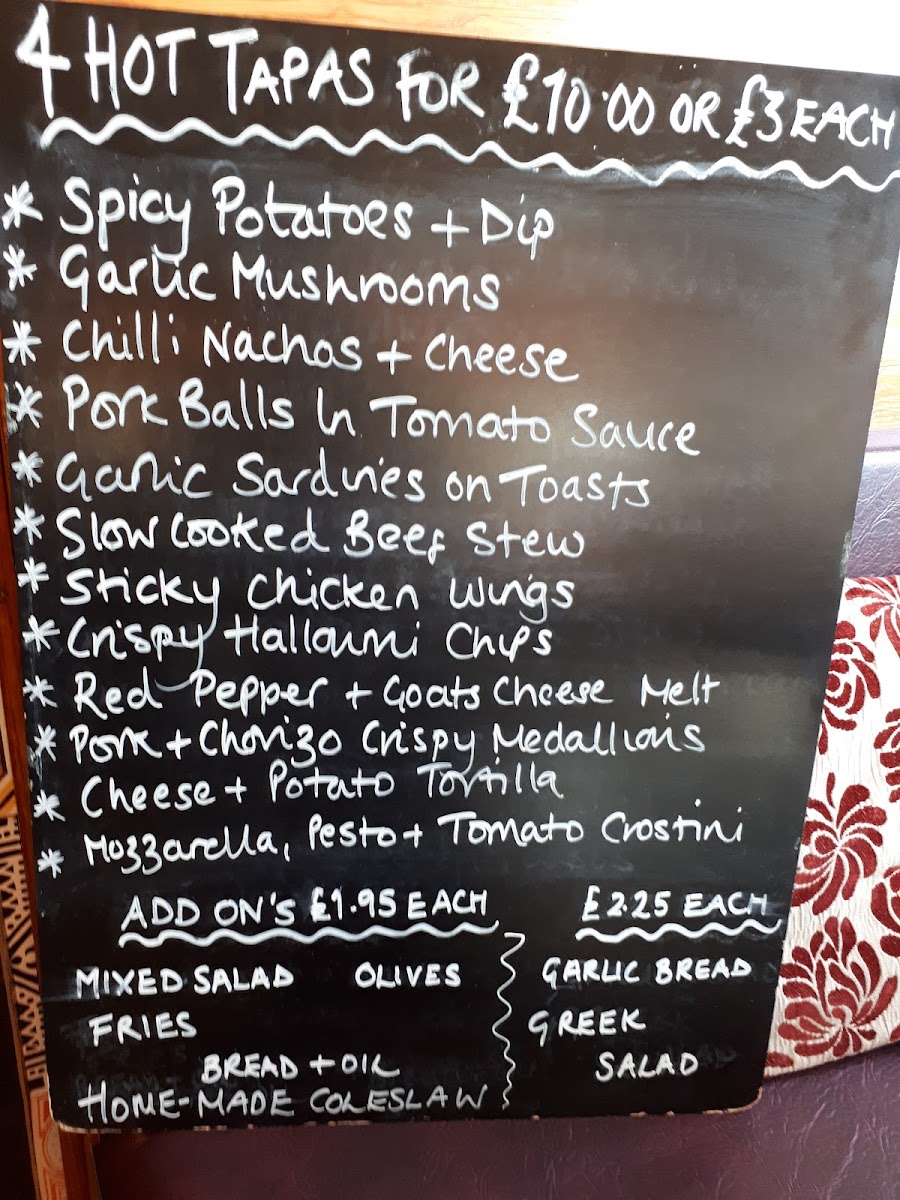 4 HOT TAPAS FOR £10.00 OR £3 EACH
* Spicy Potatoes + Dip
* Garlic Mushrooms
* Chilli Nachos + Cheese
* Pork Balls In Tomato Sauce
* Garlic Sardines on Toasts
* Slow Cooked Beef Stew
* Sticky Chicken Wings
* Crispy Halloumi Chips
* Red Pepper + Goats Cheese Melt
* Pork + Chorizo Crispy Medallions
* Cheese + Potato Tortilla
* Mozzarella, Pesto + Tomato Crostini
ADD ON'S £1.95 EACH
MIXED SALAD OLIVES
FRIES
BREAD + OIL
HOME-MADE COLESLAW
£2.25 EACH
GARLIC BREAD
GREEK
SALAD